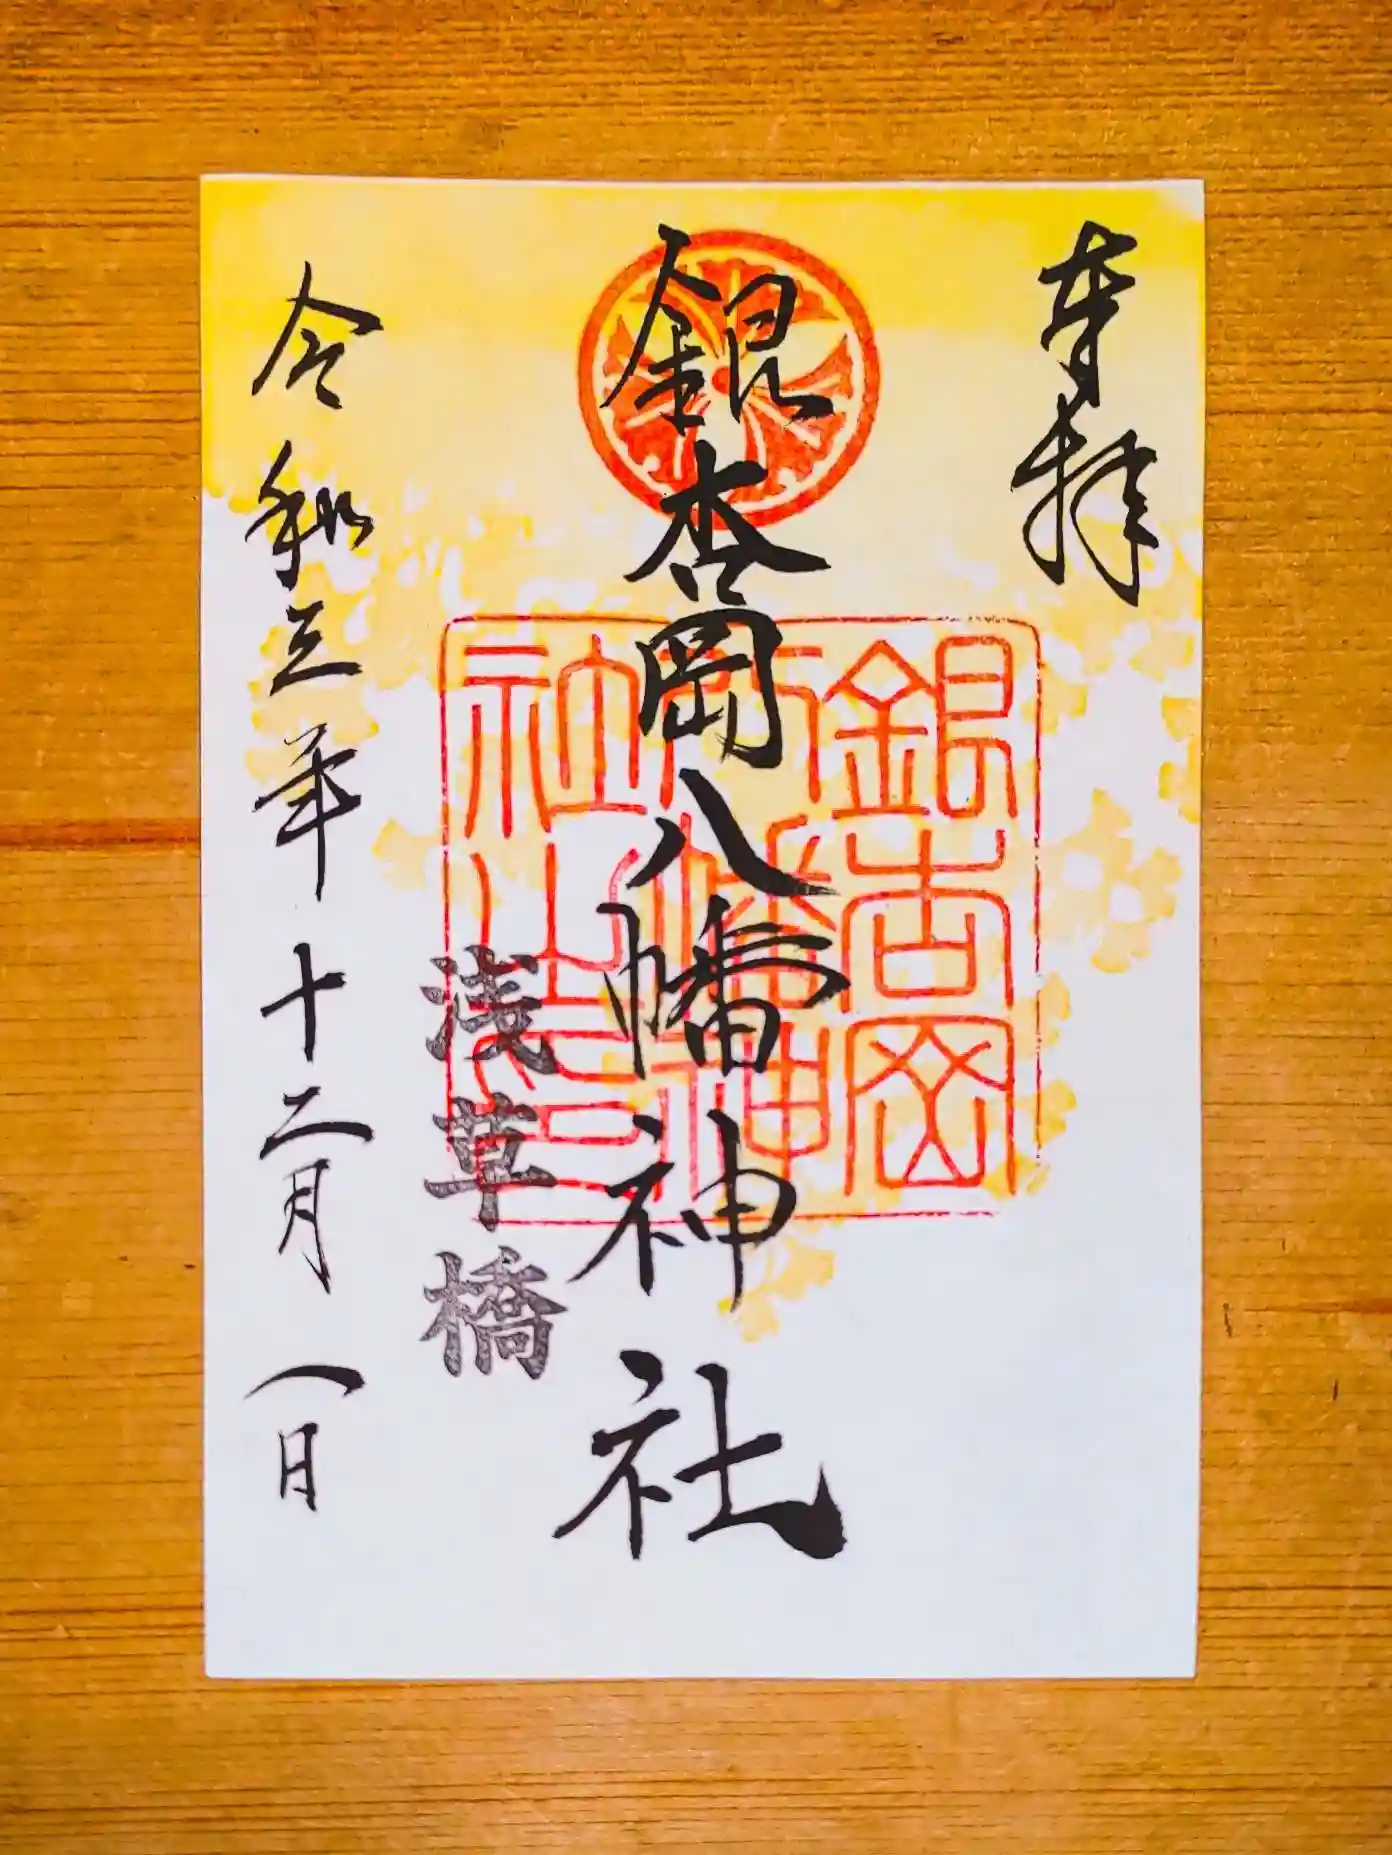 奉拝
銀杏岡八幡神社
銀杏岡
八幡神
社之印
浅草橋
令和三年十二月一日